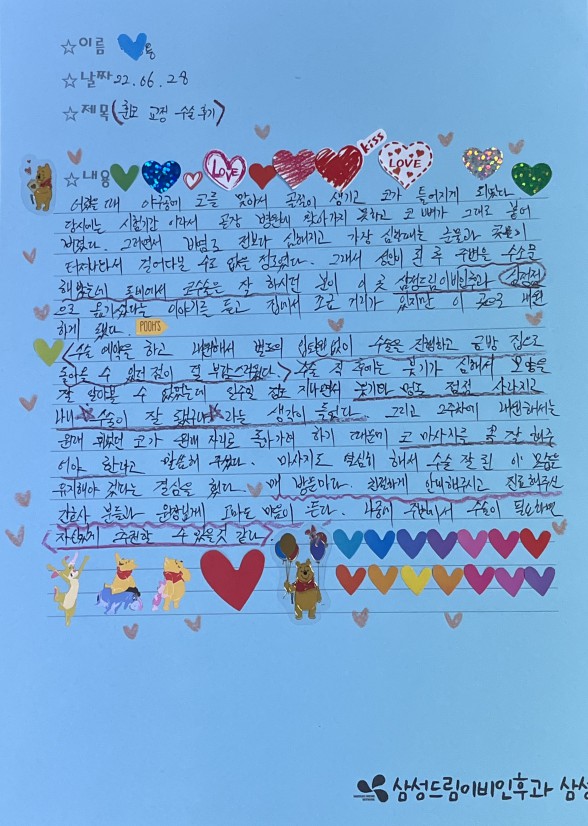 ☆이름
☆날짜 22.06.28
☆제목 (휜코 교정 수술 후기)
kiss
LOVE LOVE
☆내용
어렸을 때 야구공에 코를 맞아서 골절이 생기고 코가 틀어지게 되었다
당시에는 시험기간 이라서 곧장 병원에 찾아가지 못하고 코 뼈가 그대로 붙어
버렸다. 그러면서 비염도 전보다 심해지고 가장 심할때는 눈물과 콧물이
터져나와서 걸어다닐 수도 없을 정도였다. 그래서 성인이 된 후 주변을 수소문
해 봤는데 코수술을 잘 하시던 분이 이 곳 삼성드림이비인후과 삼성점
으로 옮기셨다는 이야기를 듣고 집에서 조금 거리가 있지만 이 곳으로 내원
하게 됐다. POOH'S
<수술 예약을 하고 내원해서 별도의 입원 없이 수술을 진행하고 금방 집으로
돌아올 수 있던 점이 덜 부담스러웠다.> 수술 직 후에는 붓기가 심해서 모양을
잘 알아볼 수 없었는데 일주일 정도 지나면서 붓기와 멍도 점점 사라지고
수술이 잘 됐구나 라는 생각이 들었다. 그리고 2주차에 내원해서는
원래 휘었던 코가 원래 자리로 돌아가려 하기 때문에 코 마사지를 꼭 잘 해줘
어야 한다고 말씀해 주셨다. 마사지도 열심히 해서 수술 잘 된 이 모양을
유지해야 겠다는 결심을 했다. 매 방문마다 친절하게 안내해주시고 진료해주신
간호사 분들과 원장님께 고마운 마음이 든다. 나중에 주변에서 수술이 필요하면
<자신있게 추천할 수 있을것 같다>.
삼성드림이비인후과 삼성